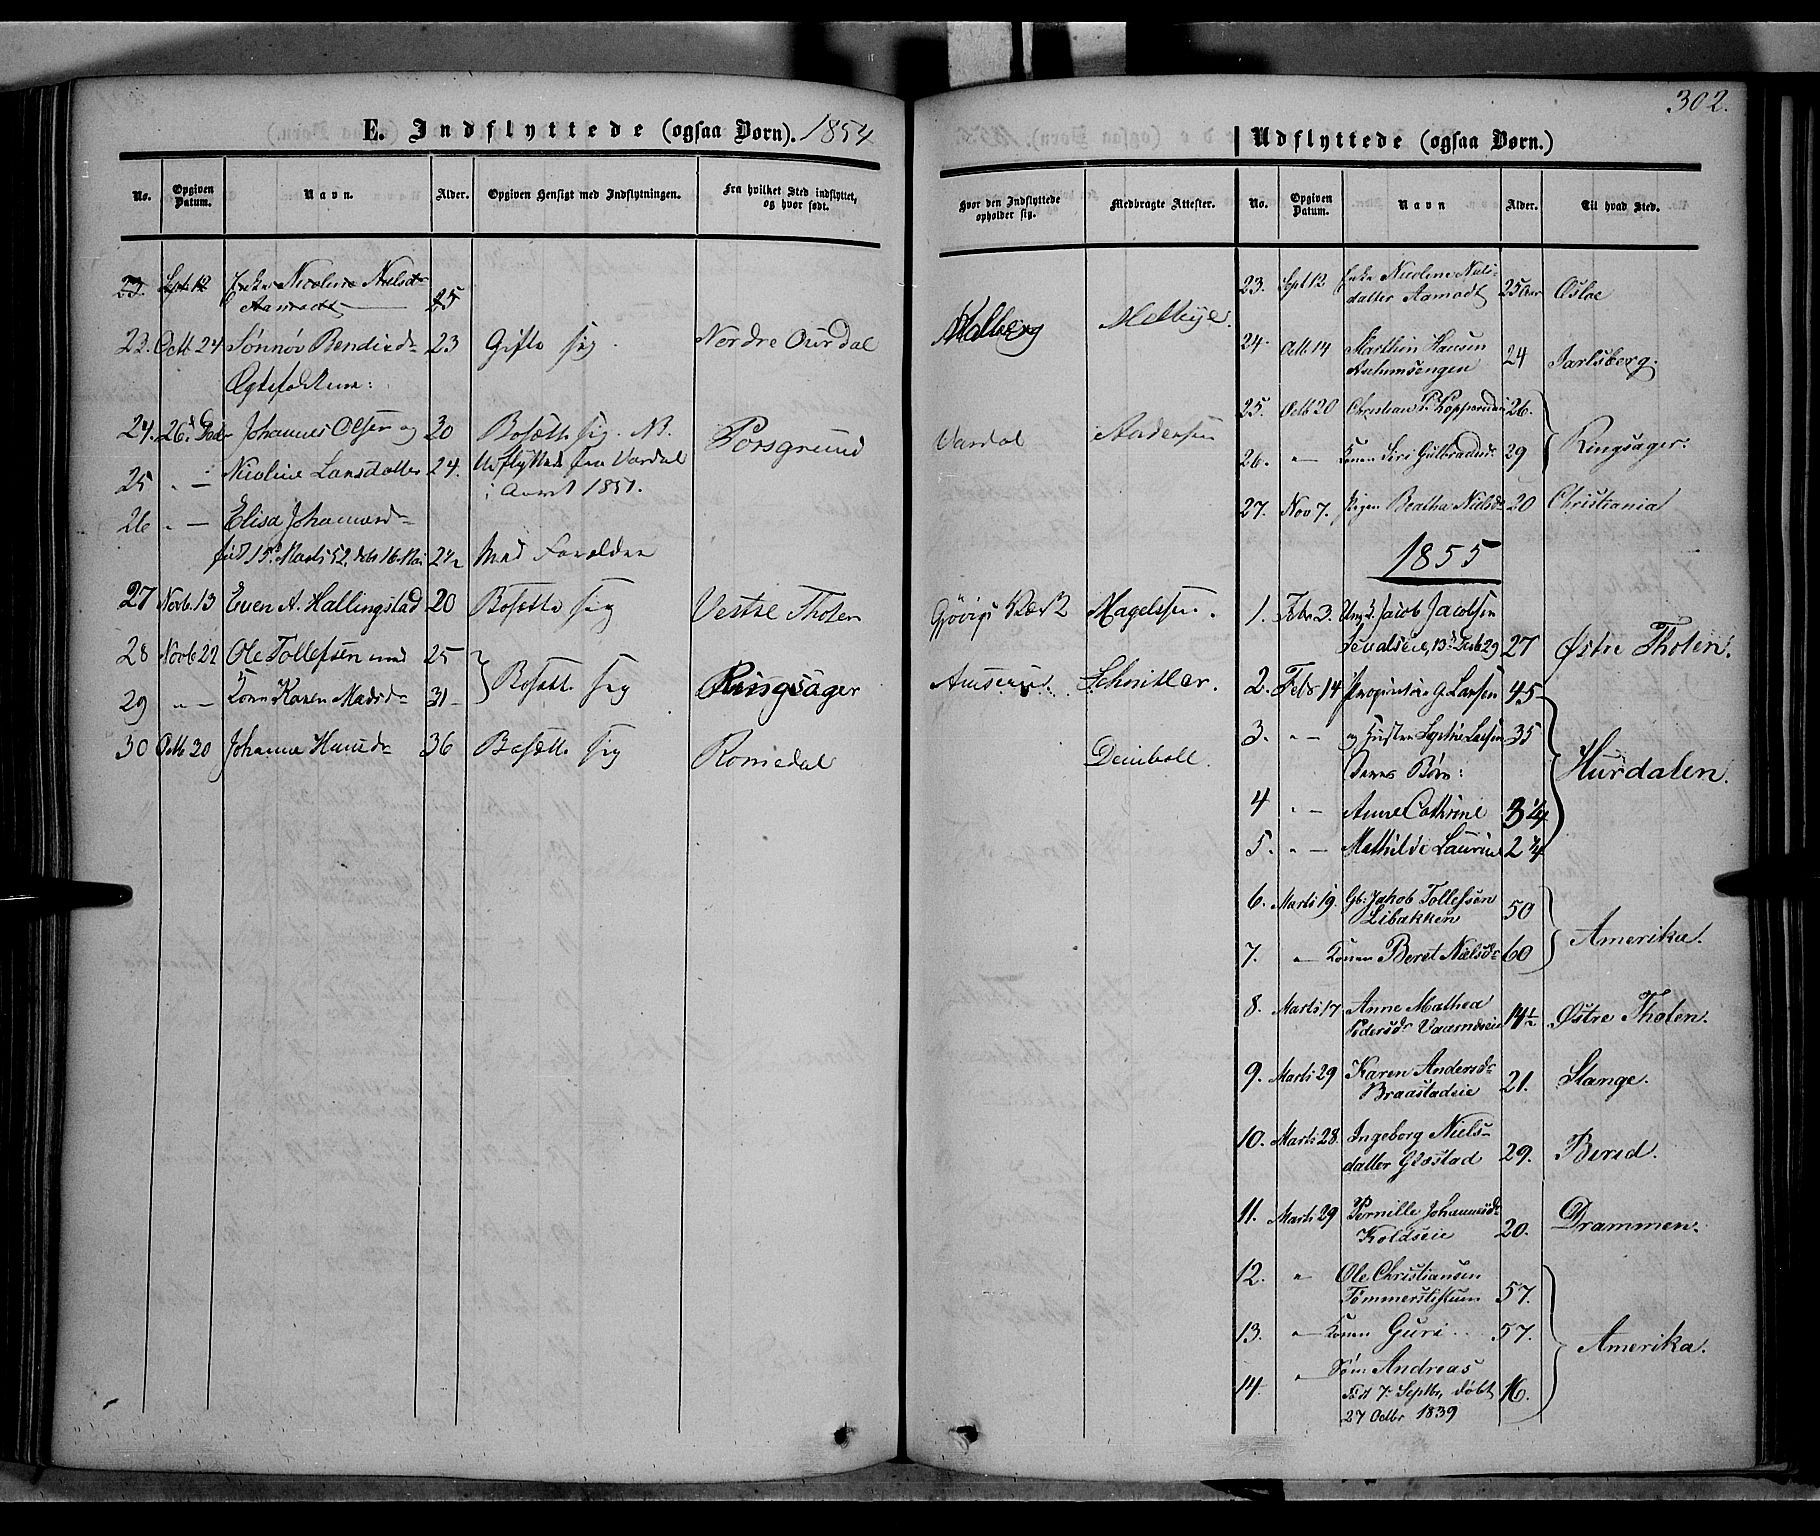 302.
E. Indflyttede (ogsaa Børn). 1854
No. Opgiven Datum. Navn. Alder. Opgiven Hensigt med Indflytningen. Fra hvilket Sted indflyttet, og hvor født.
23. Sept 12 Enke Nicoline Nielsd-
Aamodt 25
23. Octb 24 Sønnøv Bendicsd- 23 Gifte sig. Nordre Ourdal
Ægtefolkene:
24. 26d Dec Johannes Olsen og 30 Bosætte sig. NB. Porsgrund
25 " — Nicoline Larsdatter 24. Udflyttede fra Vardal
i Aaret 1851.
26 " — Elisa Johannesd-
født 15d Marts 52, døbt 16. Mai 2½ Med Forældre
27 Novb. 13 Even A. Hallingstad 20 Bosætte sig Vestre Thoten
28 Novb 22 Ole Tollefsen med 25
29 " — Konen Karen Madsd- 31 Bosætte sig Ringsager
30 Octb 20 Johanne Hansd- 36 Bosætte sig Romedal
Hvor den Indflyttede opholder sig. Medbragte Attester.
Melbye.
Vardal Andersen
Gjøvigs Værk Magelssen.
Schnitler.
Deinboll.
Udflyttede (ogsaa Børn.)
No. Opgiven Datum. Navn Alder. Til hvad Sted.
23. Sept 12 Enke Nicoline Niels-
datter Aamodt 25 Aar Osloe
24. Octb. 14 Marthin Hansen
24 Jarlsberg.
25. Octb 20 Christian P. Kopperud 26.
26. " — Konen Siri Gulbrandsd- 29 Ringsager.
27. Nov 7. Pigen Beathe Nielsd- 20 Christiania
1855
1. Febr 3. Ungk. Jacob Jacobsen
13d Decb 29 27 Østre Thoten.
2. Febr 14 Proprietær G. Larsen 45
3. " — og Hustru Larsen 35
Deres Børn: Hurdalen.
4 " — Anne Cathrine 3¼
5. " — Mathilde Laurine 2¼
6. Marts 19. Gb. Jakob Tollefsen
Libakken 50
7. " — Konen Beret Nielsd- 60 Amerika.
8. Marts 17 Anne Mathea
Pedersd- 14½ Østre Thoten.
9. Marts 29 Karen Andersd-
Braastadeie 21. Stange.
10. Marts 28. Ingeborg Niels-
datter Glæstad 29. Birid.
11. Marts 29 Pernille Johannesd-
Koldseie 20. Drammen.
12. " Ole Christiansen
Tømmerstigum 57.
13. " — Konen Guri.. 57. Amerika.
14. " Søn Andreas
Født 7. Septbr, døbt 16.
27 Octbr 1839